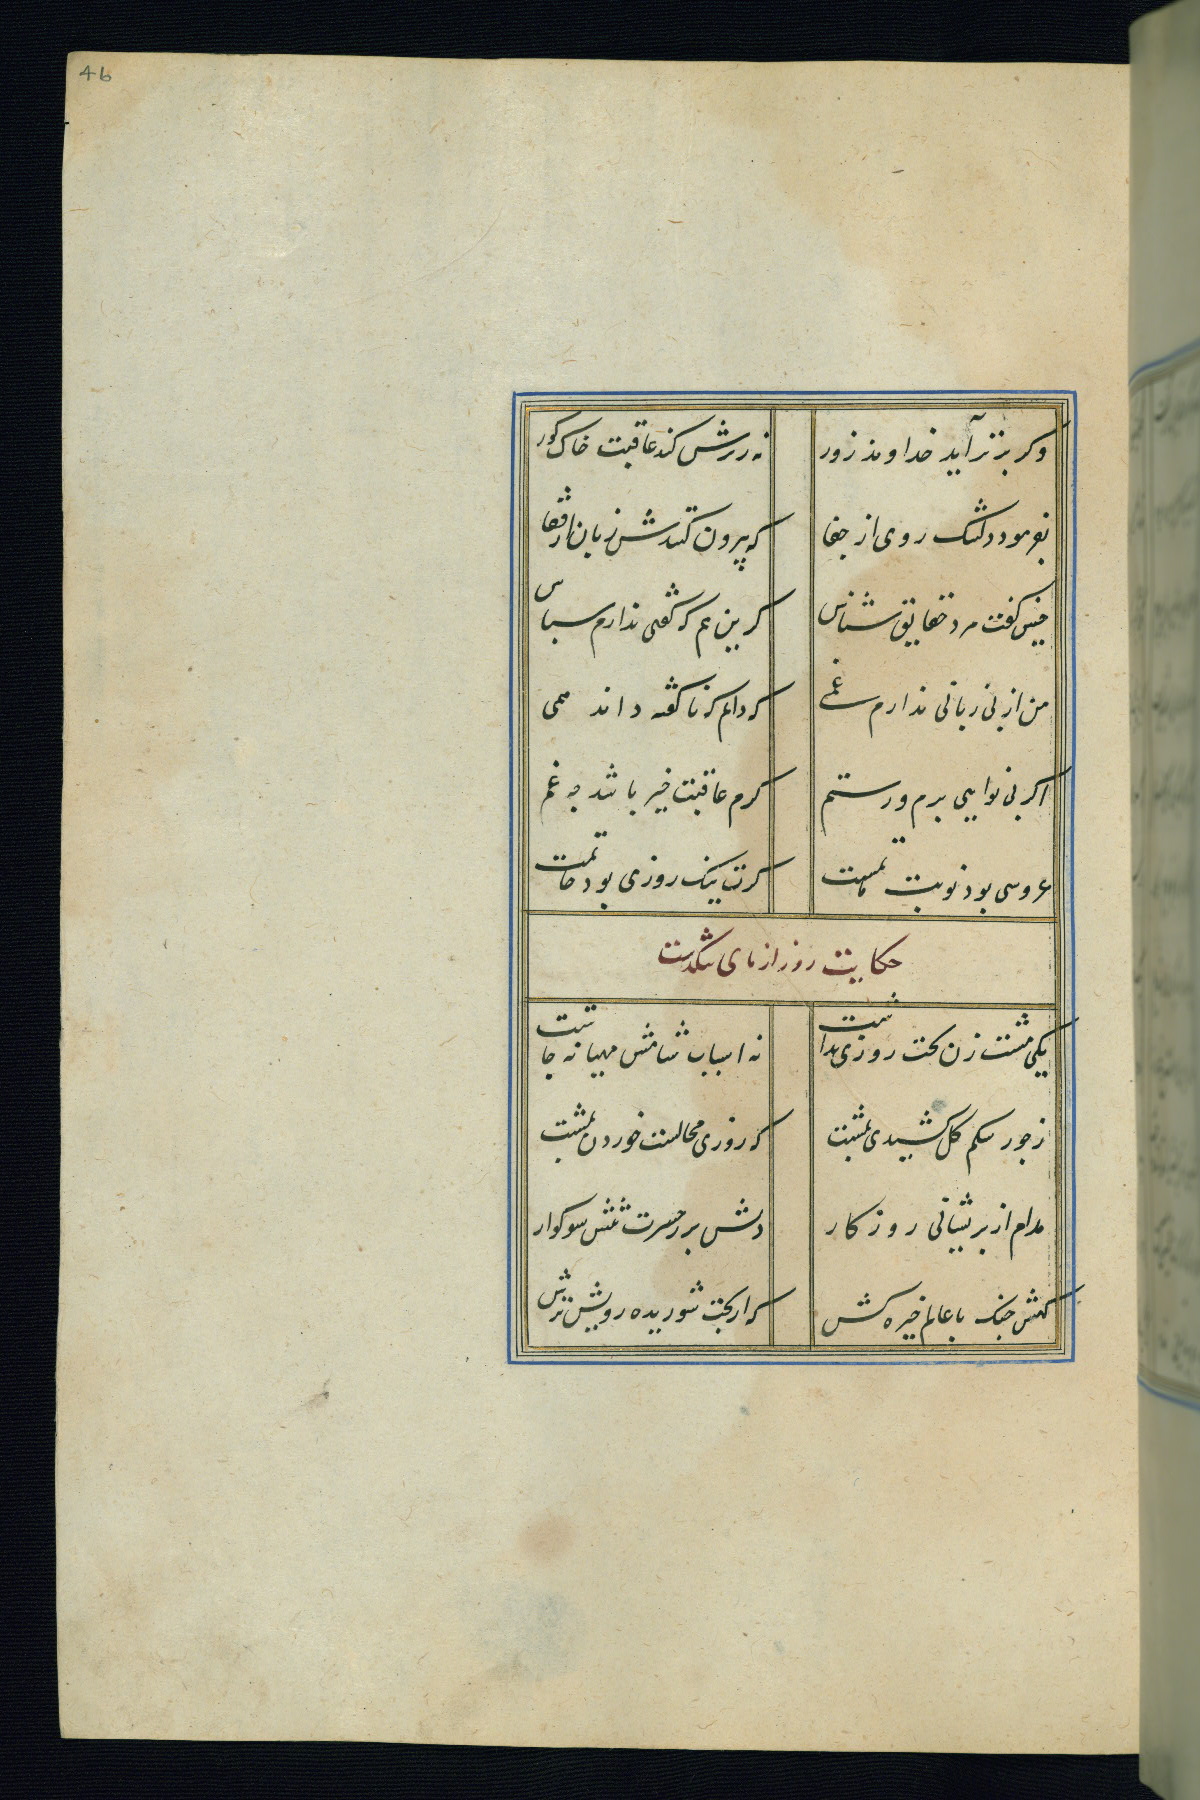 46
وكر برتر آید خداوند زور نه زرش کند عاقبت خاک کور
بفرمود دلتنک روی از جفا که بیرون کنندش زبان از قفا
چنین کفت مرد حقایق شناس کزین هم که کفتی ندارم سباس
من از بی زبانی ندارم غمی که دانم که ناکفته داند همی
اکر بی نوایی برم ور ستم کرم عاقبت خیر باشد چه غم
عروسی بود نوبت ماتمت کرت نیک روزی بود خاتمت
حکایت روز ازمای تنکدست
یکی مشت زن بخت روزی نداشت نه اسباب شامش مهیا نه چاشت
ز جور شکم کل کشیدی بمشت که روزی محالست خوردن بمشت
مدام از بریشانی روزکار دلش بر ز حسرت تنش سوکوار
کهش جنک با عالم خیره کش که از بخت شوریده رویش ترش